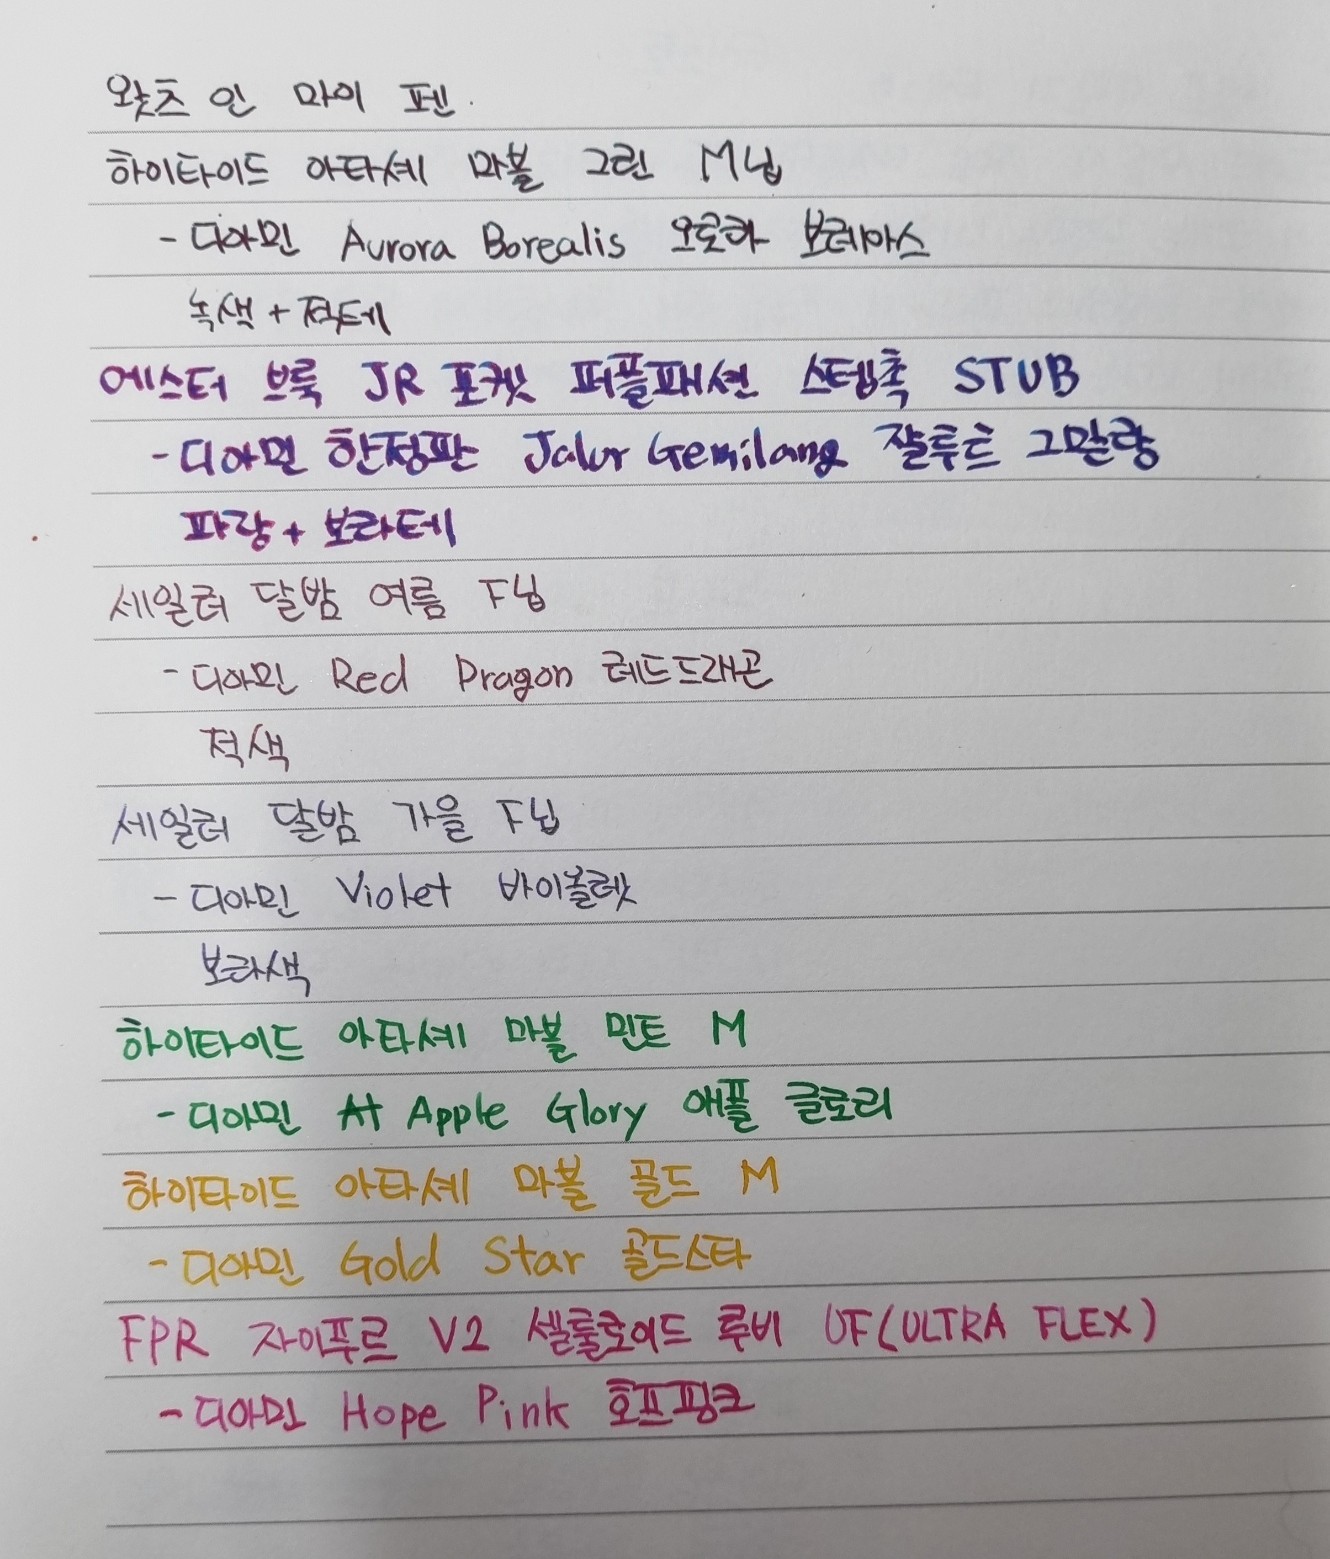 왓츠 인 마이 펜.
하이타이드 아타셰 마블 그린 M닙
- 디아민 Aurora Borealis 오로라 보레아스
녹색 + 적테
에스터 브룩 JR 포켓 퍼플패션 스텁촉 STUB
- 디아민 한정판 Jalur Gemilang 잘루르 그말랑
파랑 + 보라테
세일러 달밤 여름 F닙
- 디아민 Red Dragon 레드드래곤
적색
세일러 달밤 가을 F닙
- 디아민 Violet 바이올렛
보라색
하이타이드 아타셰 마블 민트 M
- 디아민 At Apple Glory 애플 글로리
하이타이드 아타셰 마블 골드 M
- 디아민 Gold Star 골드스타
FPR 자이푸르 V2 셀룰로이드 루비 UF(ULTRA FLEX)
- 디아민 Hope Pink 호프핑크